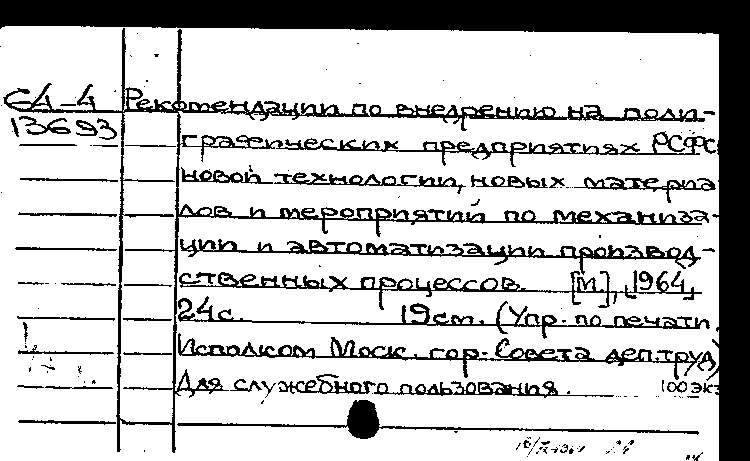 64-4 Рекомендации по внедрению на поли-
13693 графических предприятиях РСФС
новой технологии, новых материа
лов и мероприятий по механиза-
ции и автоматизации производ-
ственных процессов. [М.], 1964,
24с. 19см. (Упр. по печати.
Исполком Моск. гор. Совета деп. труд)
Для служебного пользования. 100 экз